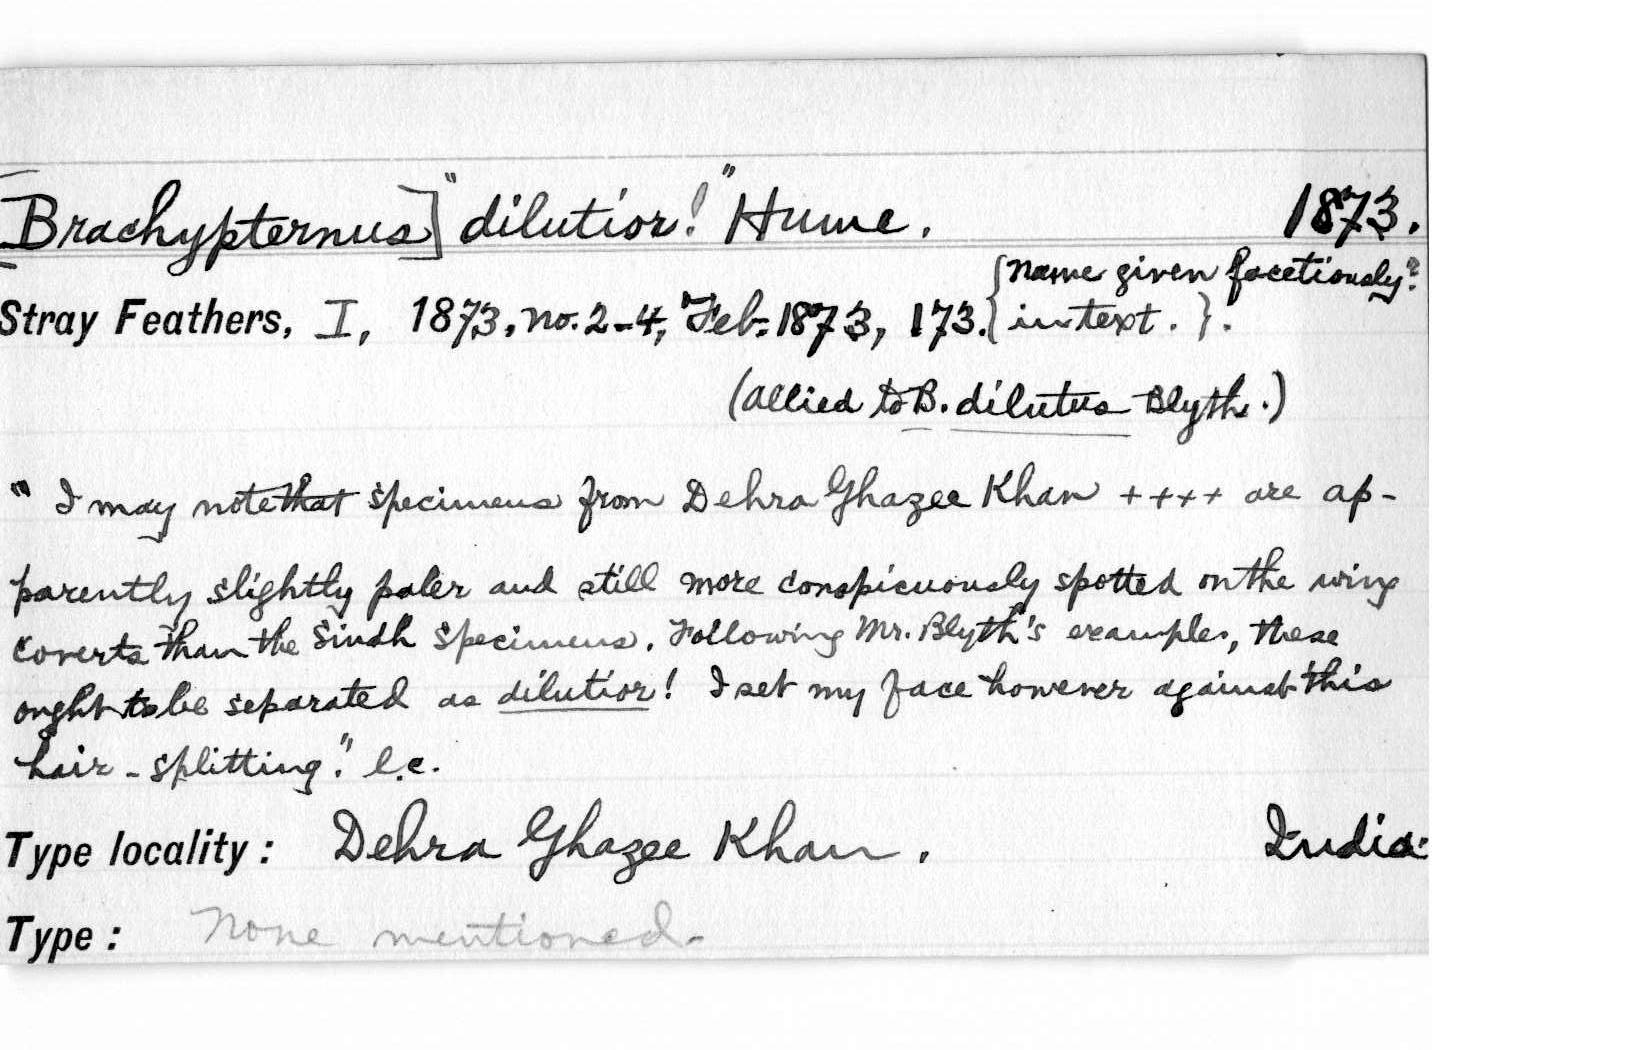 [Brachypternus] "dilutior!" Hume. 1873.
{Name given facetiously?
Stray Feathers, I, 1873, no. 2-4, Feb. 1873, 173. in text.}.
(Allied to B. dilutus Blyth.)
" I may note that specimens from Dehra Ghazee Khan ++++ are ap-
parently slightly paler and still more conspicuously spotted on the wing
coverts than the Sindh specimens. Following Mr. Blyth's example, these
ought to be separated as dilutior! I set my face however against this
hair-splitting." l.c.
Type locality: Dehra Ghazee Khan. India.
Type: None mentioned-